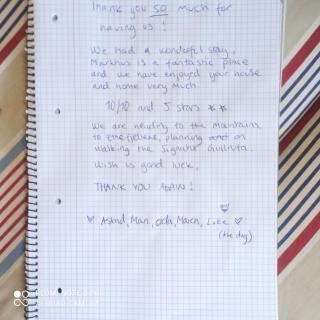 Thank you so much for
having us!
We had a wonderful stay,
Markhus is a fantastic place
and we have enjoyed your house
and home very much.
10/10 and 5 stars **
We are heading to the mountains,
to planning on
walking the Signatur
Wish us good luck.
THANK YOU AGAIN!
Astrid, Mari, Oda, Maren, Luke
(the dog)